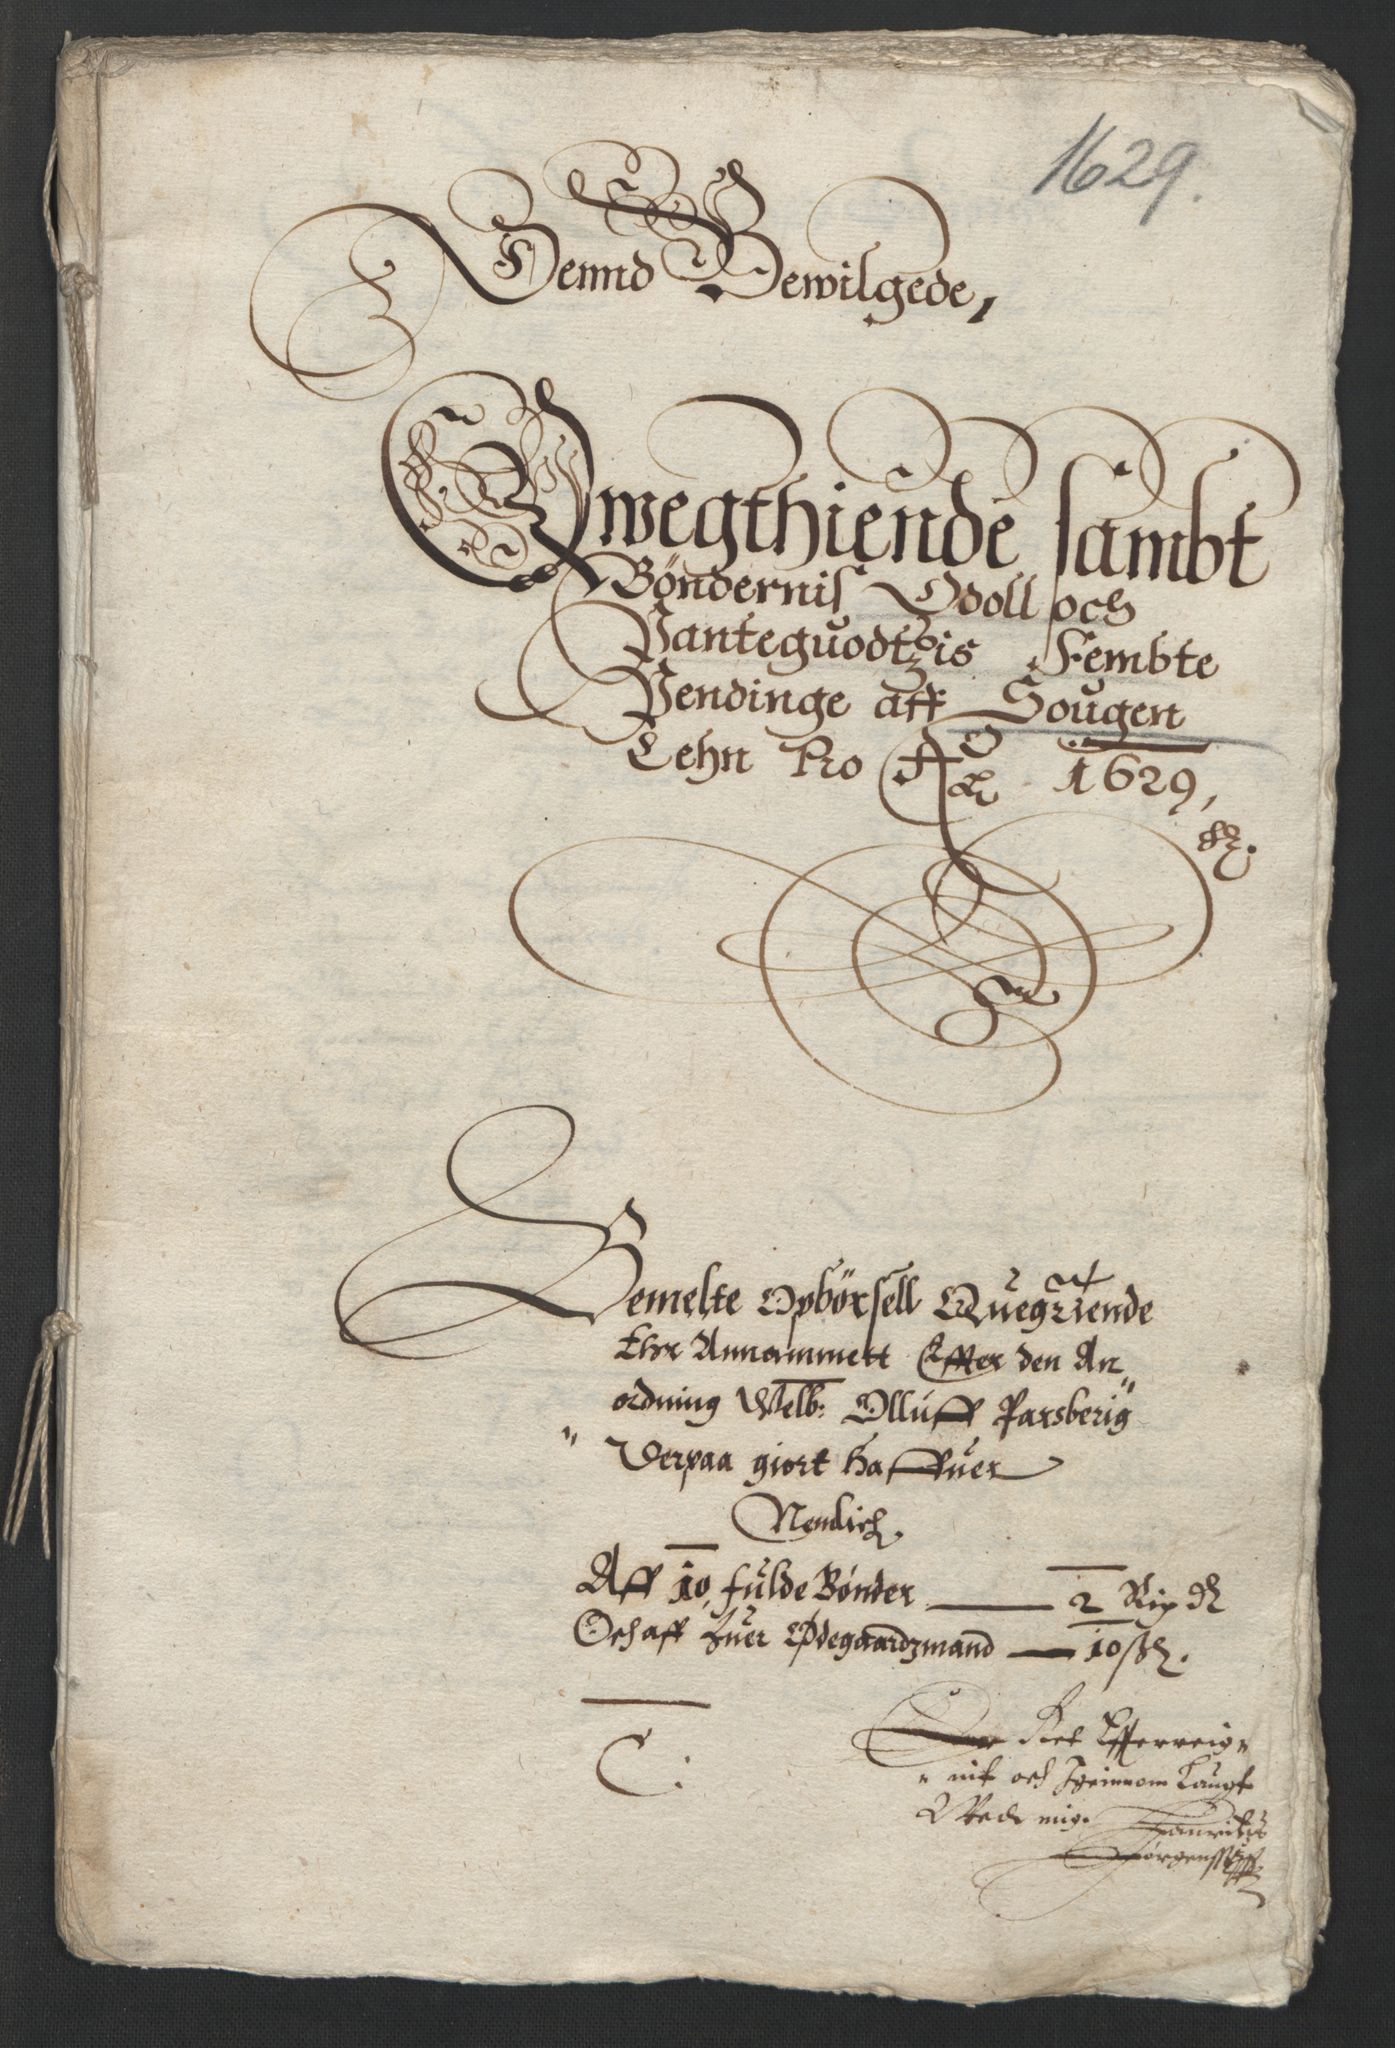 1629.
Dennd Bewilgede,
Qwegthiende sambt
Bøndernis Odoll och
Panteguodtzis Fembte
Pendinge aff Sougen
Lehn Pro Ao 1629,
Bemelte Opbørsell Quegtiende
Ehr Annammett Effter den An„
ordning Welb: Olluff Parsberig
„ Derpaa giort haffuer
Nemlich
Aff 10 fulde Bønder — 2 Rix dl
Och aff huer Ødegaardzmand — 10 ß.
C.
Ret Offerreig„
„ nit och Igeinnom Laugt
Wede mig. Hanritz
Jørgenss